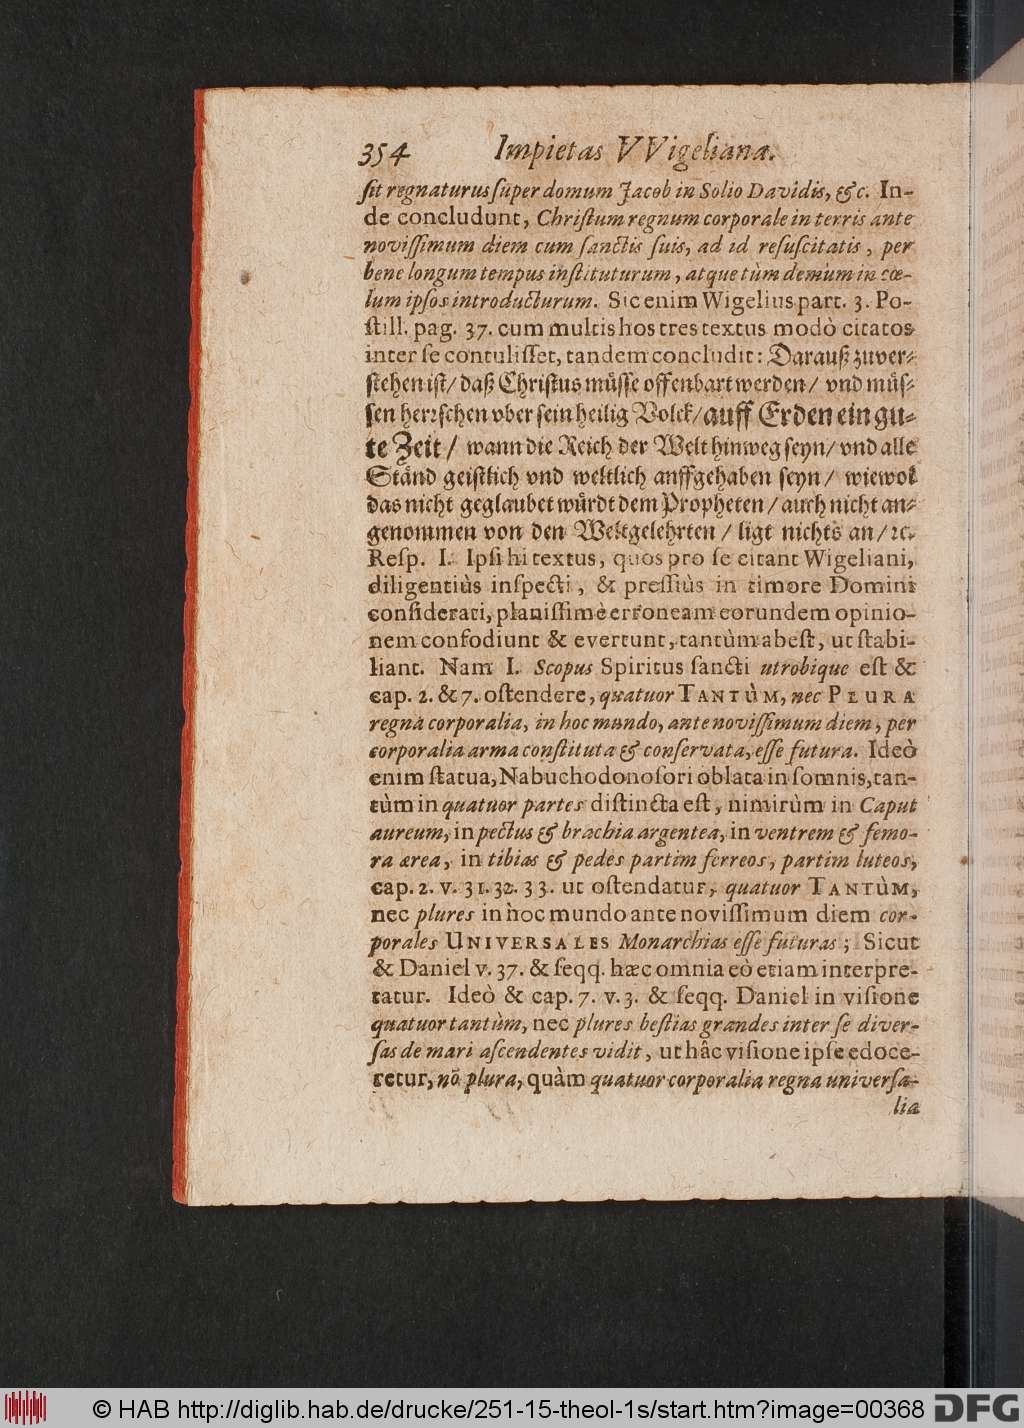 354 Impietas VVigeliana.
ſit regnaturus ſuper domum Jacob in Solio Davidis, &c. In-
de concludunt, Chriſtum regnum corporale in terris ante
noviſſimum diem cum ſanctis ſuis, ad id reſuſcitatis, per
bene longum tempus inſtituturum, atque tùm demùm in cœ-
lum ipſos introducturum. Sic enim Wigelius part. 3. Po-
ſtill. pag. 37. cum multis hos tres textus modò citatos
inter ſe contuliſſet, tandem concludit: Darauß zuver-
ſtehen iſt/ daß Chriſtus müſſe offenbart werden/ vnd müſ-
ſen herrſchen vber ſein heilig Volck/ auff Erden ein gu-
te Zeit/ wann die Reich der Welt hinweg ſeyn/ vnd alle
Ständ geiſtlich vnd weltlich auffgehaben ſeyn/ wiewol
das nicht geglaubet würdt dem Propheten/ auch nicht an-
genommen von den Weltgelehrten/ ligt nichts an/ ꝛc.
Reſp. I. Ipſi hi textus, quos pro ſe citant Wigeliani,
diligentiùs inſpecti, & preſſiùs in timore Domini
conſiderati, planiſſimè erroneam eorundem opinio-
nem confodiunt & evertunt, tantùm abeſt, ut ſtabi-
liant. Nam I. Scopus Spiritus ſancti utrobique eſt &
cap. 2. & 7. oſtendere, quatuor TANTÙM, nec PLURA
regna corporalia, in hoc mundo, ante noviſſimum diem, per
corporalia arma conſtituta & conſervata, eſſe futura. Ideò
enim ſtatua, Nabuchodonoſori oblata in ſomnis, tan-
tùm in quatuor partes diſtincta eſt, nimirùm in Caput
aureum, in pectus & brachia argentea, in ventrem & femo-
ra ærea, in tibias & pedes partim ferreos, partim luteos,
cap. 2. v. 31. 32. 33. ut oſtendatur, quatuor TANTÙM,
nec plures in hoc mundo ante noviſſimum diem cor-
porales UNIVERSALES Monarchias eſſe futuras; Sicut
& Daniel v. 37. & ſeqq. hæc omnia eò etiam interpre-
tatur. Ideò & cap. 7. v. 3. & ſeqq. Daniel in viſione
quatuor tantùm, nec plures beſtias grandes inter ſe diver-
ſas de mari aſcendentes vidit, ut hâc viſione ipſe edoce-
retur, nō plura, quàm quatuor corporalia regna univerſa-
lia
© HAB http://diglib.hab.de/drucke/251-15-theol-1s/start.htm?image=00368
DFG